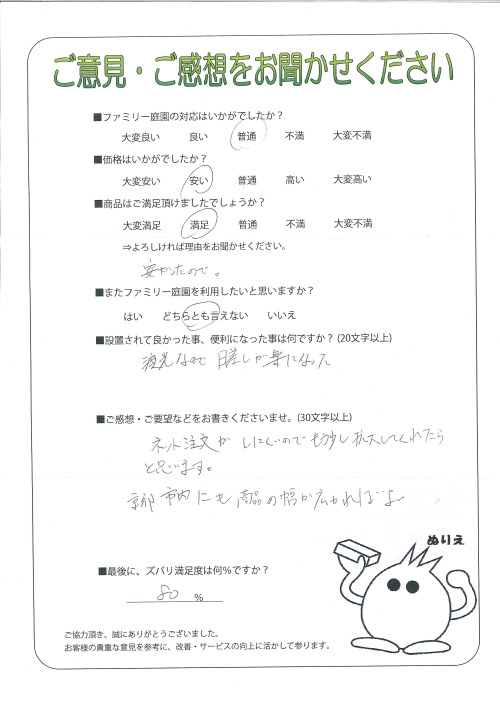 ご意見・ご感想をお聞かせください
■ファミリー庭園の対応はいかがでしたか？
大変良い 良い 普通 不満 大変不満
■価格はいかがでしたか？
大変安い 安い 普通 高い 大変高い
■商品はご満足頂けましたでしょうか？
大変満足 満足 普通 不満 大変不満
⇒よろしければ理由をお聞かせください。
安かったので。
■またファミリー庭園を利用したいと思いますか？
はい どちらとも言えない いいえ
■設置されて良かった事、便利になった事は何ですか？(20文字以上)
なので 日差しが楽になった
■ご感想・ご要望などをお書きくださいませ。(30文字以上)
ネット注文が しにくいので もう少し拡大してくれたら
と思います。
京都市内にも 商品の幅が広がれば
ぬりえ
■最後に、ズバリ満足度は何％ですか？
80 %
ご協力頂き、誠にありがとうございました。
お客様の貴重な意見を参考に、改善・サービスの向上に活かして参ります。